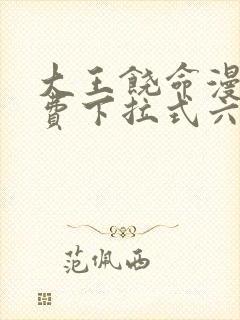 大王饶命漫
费下拉式六
范佩西